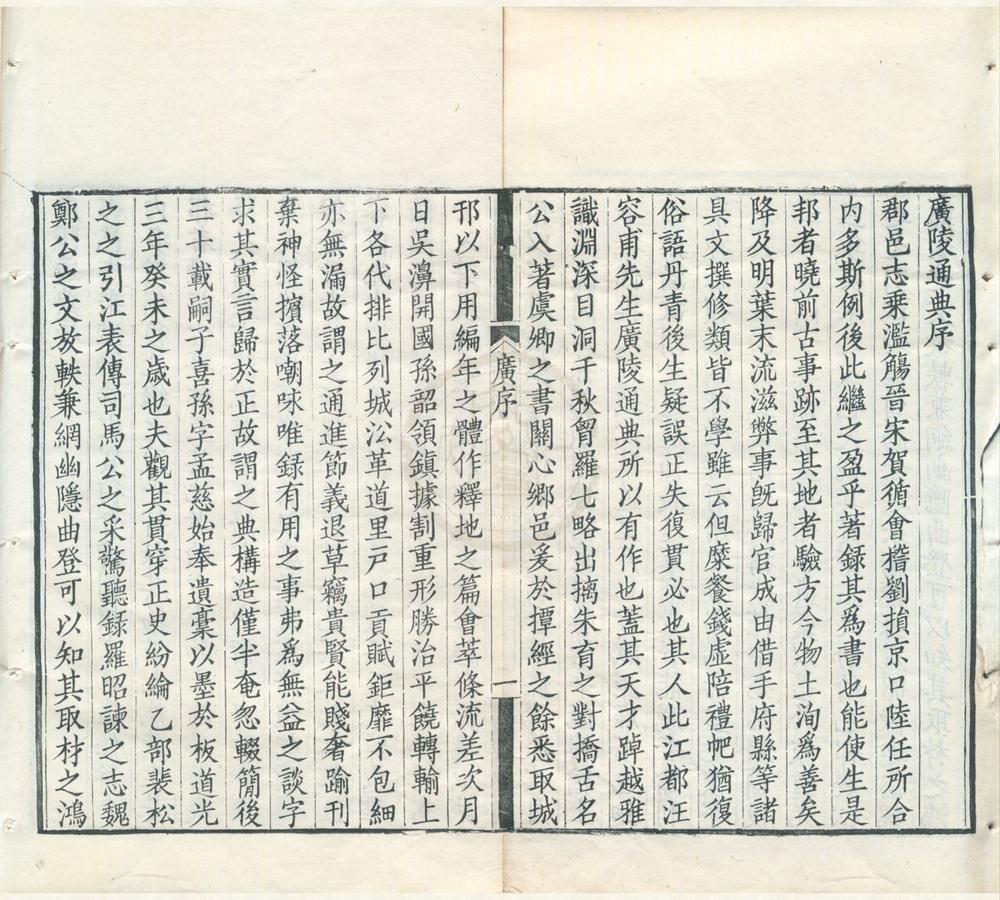 廣陵通典序
郡邑志乘濫觴晉宋賀循會稽劉損京口陸任所合
内多斯例後此繼之盈乎著録其爲書也能使生是
邦者曉前古事跡至其地者驗方今物土洵爲善矣
降及明葉末流滋弊事旣歸官成由借手府縣等諸
具文撰修類皆不學雖云但糜餐錢虛陪禮帊猶復
俗語丹青後生疑誤正失復貫必也其人此江都汪
容甫先生廣陵通典所以有作也蓋其天才踔越雅
識淵深目洞千秋胷羅七略出摛朱育之對撟舌名
公入著虞卿之書關心鄉邑爰於撢經之餘悉取城
廣序
一
邗以下用編年之體作釋地之篇會萃條流差次月
日吳濞開國孫韶領鎮據割重形勝治平饒轉輸上
下各代排比列城㳂革道里戸口貢賦鉅靡不包細
亦無漏故謂之通進節義退草竊貴賢能賤奢踰刊
棄神怪擯落嘲咏唯録有用之事弗爲無益之談字
求其實言歸於正故謂之典構造僅半奄忽輟簡後
三十載嗣子喜孫字孟慈始奉遺稾以墨於板道光
三年癸未之歲也夫觀其貫穿正史紛綸乙部裴松
之之引江表傳司馬公之采驚聽録羅昭諫之志魏
鄭公之文放軼兼網幽隱曲登可以知其取材之鴻